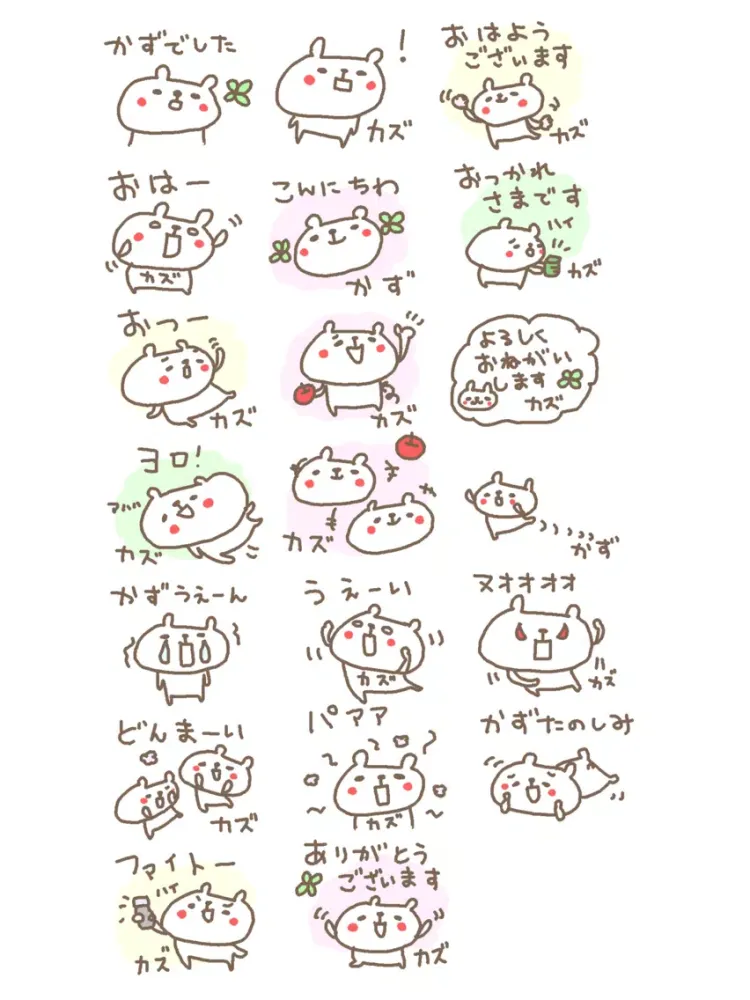 かずでした
!
カズ
おはよう
ございます
カズ
おはー
カズ
こんにちわ
かず
おっかれ
さまです
ハイ
カズ
おっー
カズ
カズ
よろしく
おねがい
します
カズ
ヨロ!
カズ
カズ
かず
かずうぇーん
うぇーい
カズ
ヌオオオオ
カズ
どんまーい
カズ
パアア
カズ
かずたのしみ
ファイトー
ハイ
カズ
ありがとう
ございます
カズ